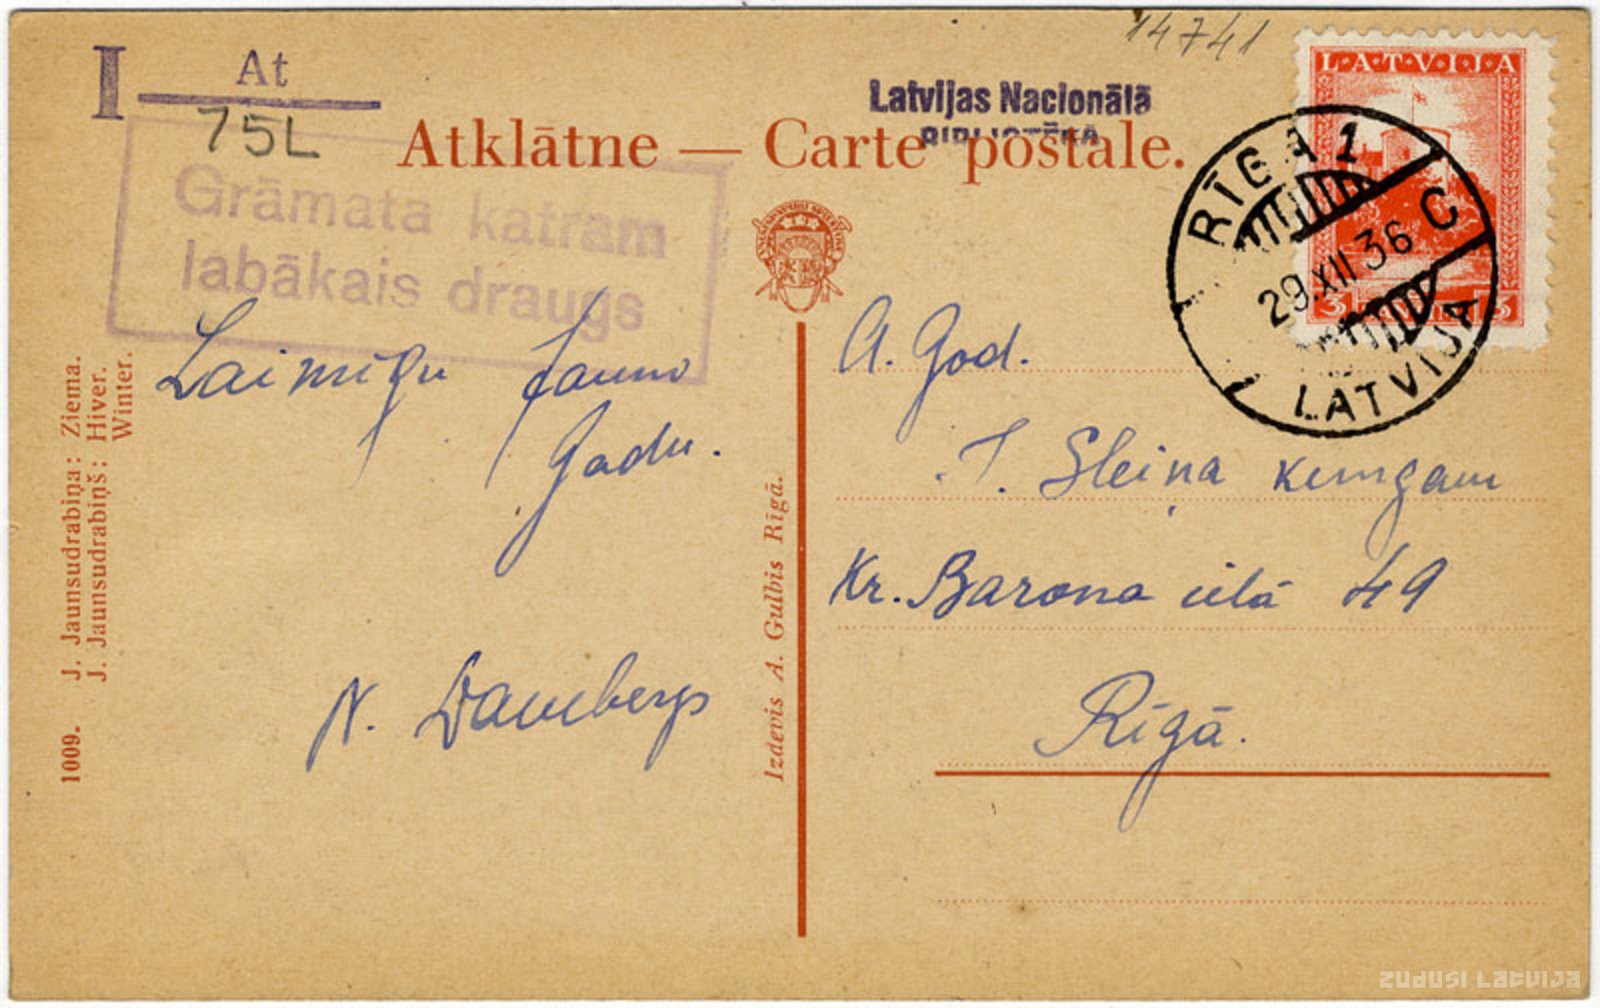 14741
I At
75L
Latvijas Nacionālā
BIBLIOTĒKA
Atklātne — Carte postale.
LATVIJA
3 3
RĪGA 1
C
29.XII 36
LATVIJA
Grāmata katram
labākais draugs
Laimīgu Jauno
Gadu.
N. Dambergs
1009. J. Jaunsudrabiņa: Ziema.
J. Jaunsudrabiņš: Hiver.
Winter.
Izdevis A. Gulbis Rīgā.
A. God.
J. Sleiņa kungam
Kr. Barona ielā 49
Rīgā.
ZUDUSI LATVIJA